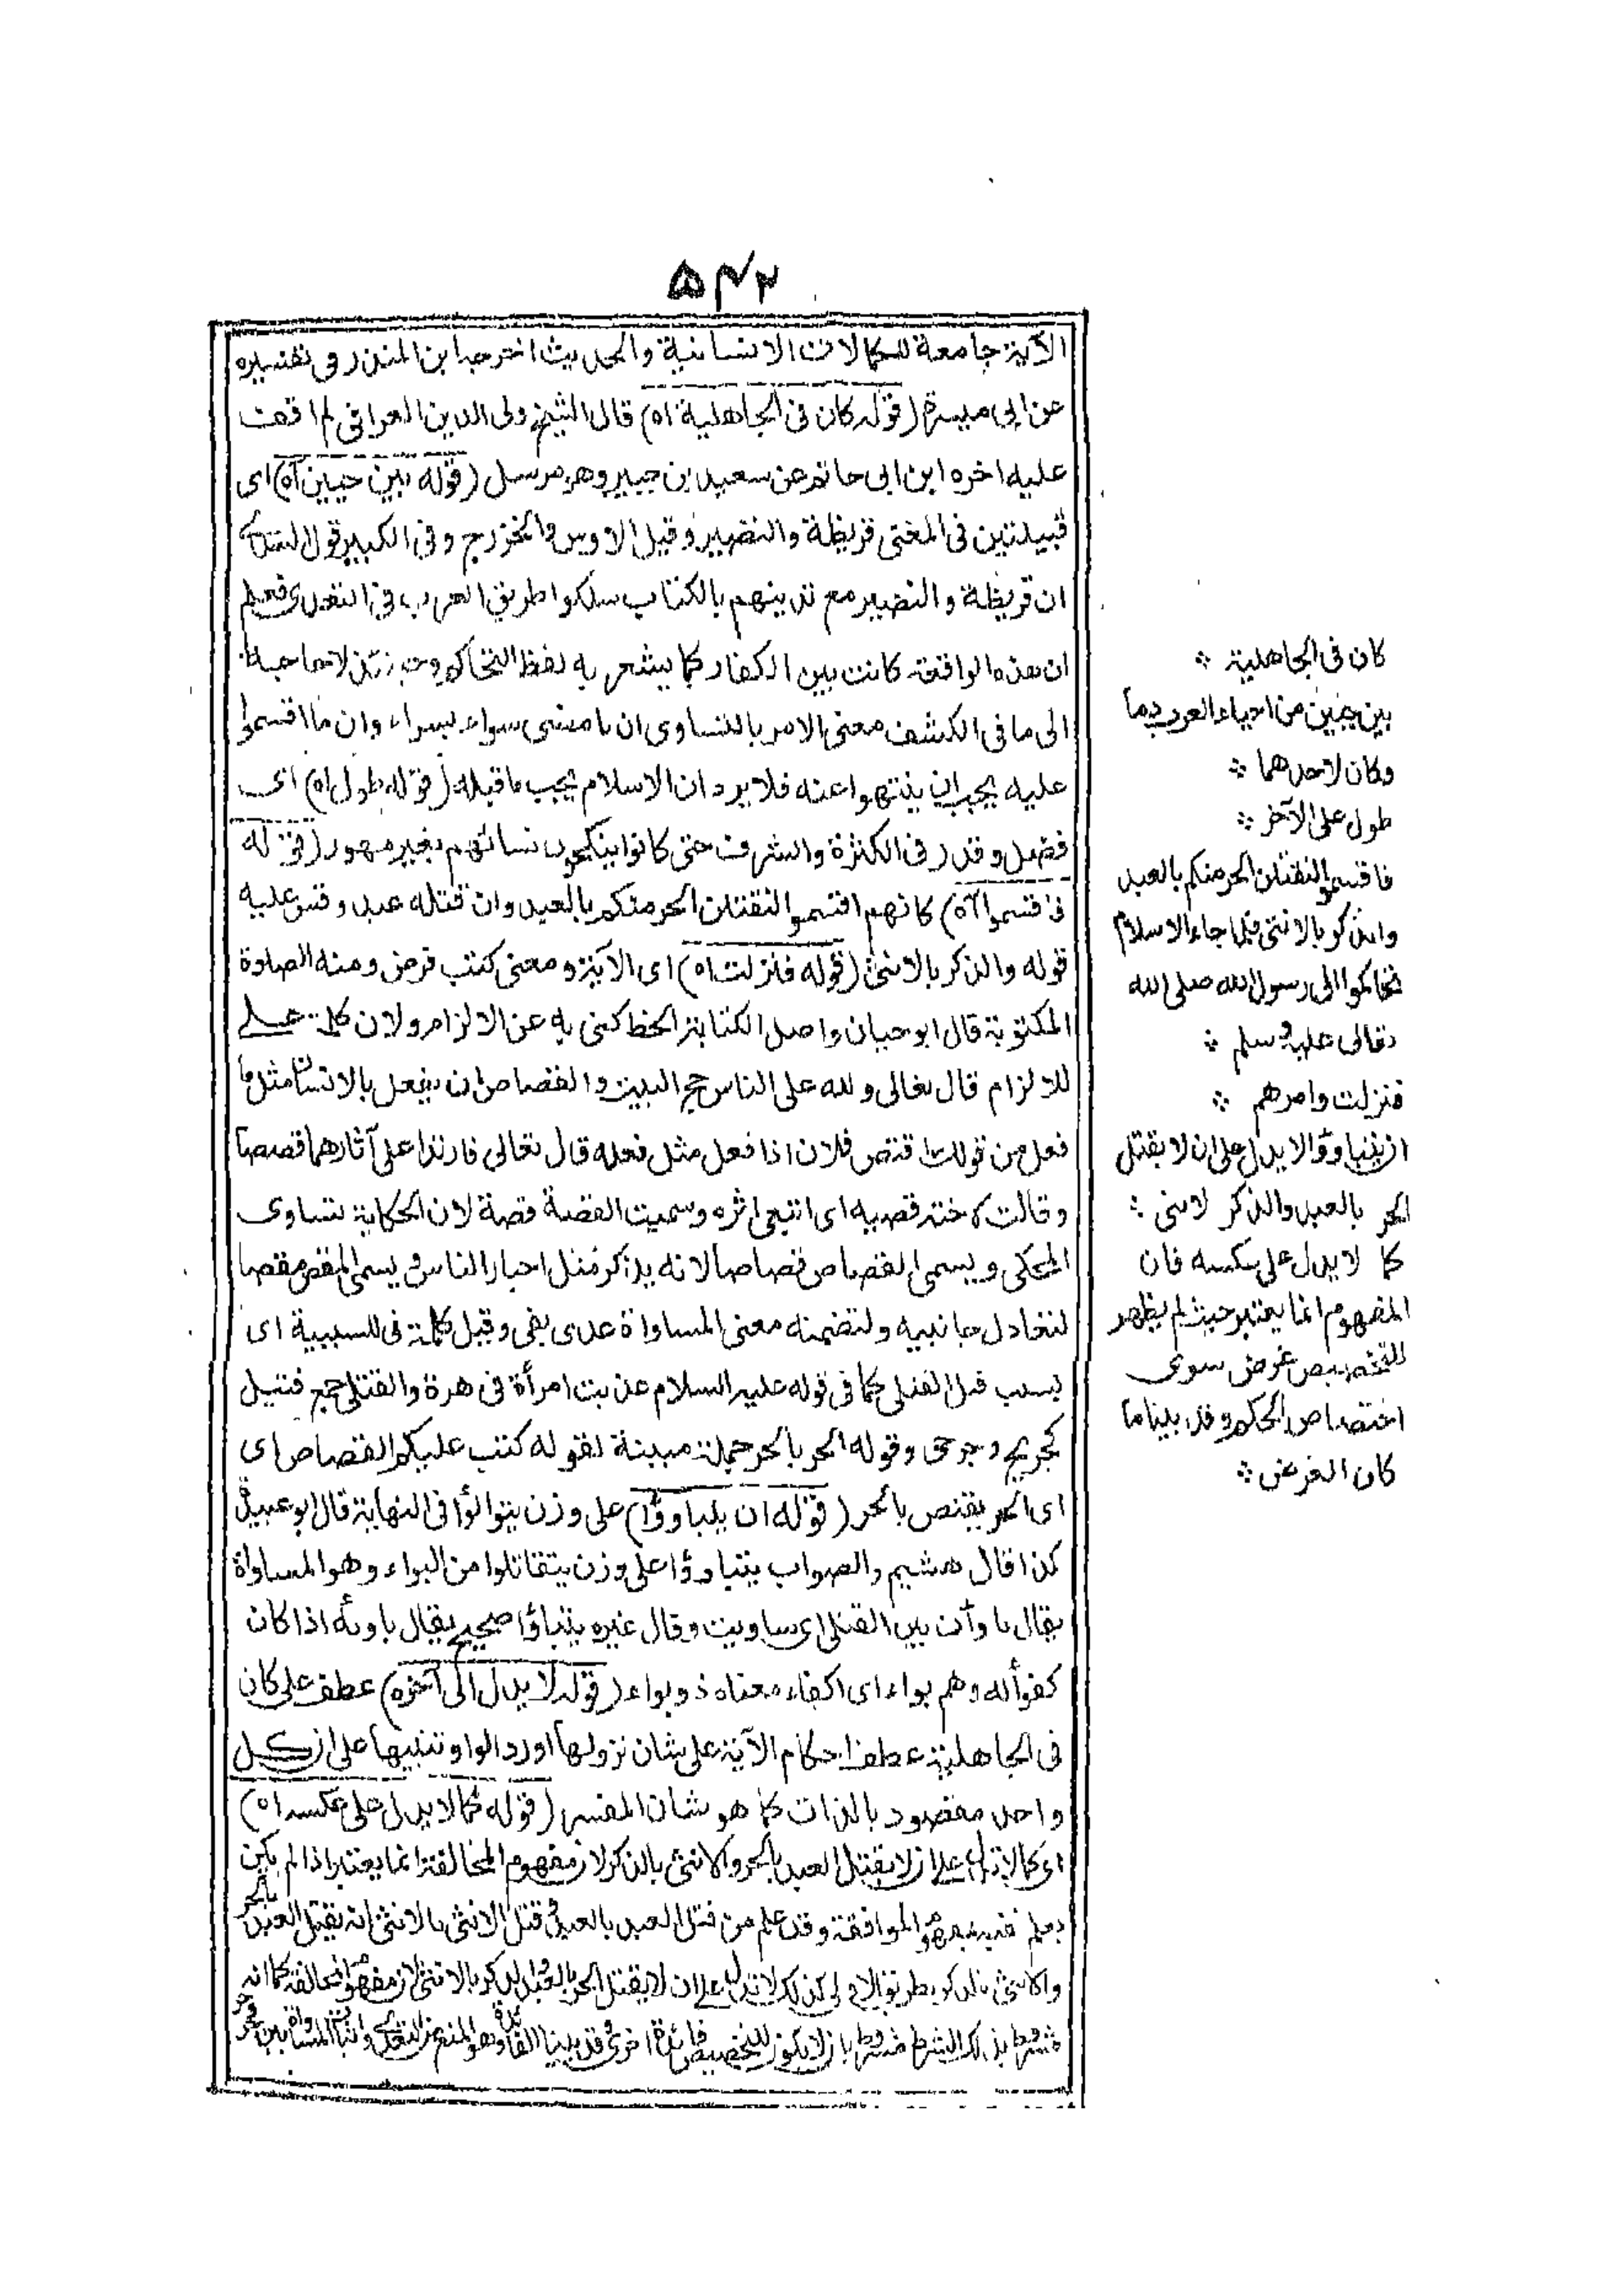 ۵۴۲
الآية جامعة للكمالات الانسانية والحديث اخرجه ابن المنذر فى تفسيره
عن ابى ميسرة (قوله كان فى الجاهلية اه) قال الشيخ ولى الدين العراقى لم اقف
عليه اخره ابن ابى حاتم عن سعيد بن جبير وهو مرسل (قوله بين حيين اه) اى
قبيلتين فى المغنى قريظة والنضير وقيل الاوس والخزرج وفى الكبير قول السدى
ان قريظة والنضير مع تدينهم بالكتاب سلكوا طريق العرب فى التعدى فعلم
ان هذه الواقعة كانت بين الكفار كما يشعر به لفظ التحاكم لا حاجة
الى ما فى الكشف معنى الامر بالتساوى ان ما مضى سواء بسواء وان ما اقسموا
عليه يجب ان ينتهوا عنه فلا يرد ان الاسلام يجب ما قبله (قوله طول اه) اى
فضل وقدر فى الكثرة والشرف حتى كانوا ينكحون نسائهم بغير مهور (قوله
فاقسموا اه) كانهم اقسموا لنقتلن الحر منكم بالعبد وان قتله عبد وقس عليه
قوله والذكر بالانثى (قوله فنزلت اه) اى الآية ومعنى كتب فرض ومنه الصلوة
المكتوبة قال ابو حيان واصل الكتابة الخط كنى به عن الالزام ولان كلمة على
للالزام قال تعالى ولله على الناس حج البيت والقصاص ان يفعل بالانسان مثل ما
فعل من قولك اقتص فلان اذا فعل مثل فعله قال تعالى فارتدا على آثارهما قصصا
وقالت لاخته قصيه اى اتبعى اثره وسميت القصة قصة لان الحكاية تساوى
المحكى ويسمى القصاص قصاصا لانه يذكر مثل اخبار الناس ويسمى المقص مقصا
لتعادل جانبيه ولتضمنه معنى المساواة عدى بفى وقيل كلمة فى للسببية اى
بسبب قتل القتلى كما فى قوله عليه السلام عذبت امرأة فى هرة والقتلى جمع قتيل
كجريح وجرحى وقوله الحر بالحر جملة مبينة لقوله كتب عليكم القصاص اى
اى الحر يقتص بالحر (قوله ان يتباوؤا) على وزن يتوالوا فى النهاية قال ابو عبيدة
كذا قال هشيم والصواب يتباوؤا على وزن يتقاتلوا من البواء وهو المساواة
يقال باوأت بين القتلى اى ساويت وقال غيره يتباؤا صحيح يقال باء به اذا كان
كفوأ له وهم بواء اى اكفاء معناه ذو بواء (قوله لا يدل الى آخره) عطف على كان
فى الجاهلية عطف احكام الآية على شان نزولها اورد الواو تنبيها على ان كل
واحد مقصود بالذات كما هو شان المفسر (قوله كما لا يدل على عكسه اه)
اى كما لا تدل على ان لا يقتل العبد بالحر والانثى بالذكر لان مفهوم المخالفة انما يعتبر اذا لم يكن
يعلم نفيه بمفهوم الموافقة وقد علم من قتل العبد بالعبد وقتل الانثى بالانثى انه يقتل العبد بالحر
والانثى بالذكر بطريق الاولى كذلك لا تدل على ان لا يقتل الحر بالعبد والذكر بالانثى لان مفهوم المخالفة كما انه
مشروط بذلك الشرط مشروط بان لا يكون للتخصيص فائدة اخرى وقد بينا الفائدة وهو المنع من التعدى واثبات المساواة بين حر وحر
كان فى الجاهلية
بين حيين من احياء العرب دما
وكان لاحدهما
طول على الآخر
فاقسموا لنقتلن الحر منكم بالعبد
والذكر بالانثى فلما جاء الاسلام
تحاكموا الى رسول الله صلى الله
تعالى عليه وسلم
فنزلت وامرهم
ان يتباوؤا ولا يدل على ان لا يقتل
الحر بالعبد والذكر لانثى
كما لا يدل على عكسه فان
المفهوم انما يعتبر حيث لم يظهر
للتخصيص غرض سوى
اختصاص الحكم وقد بينا ما
كان الغرض